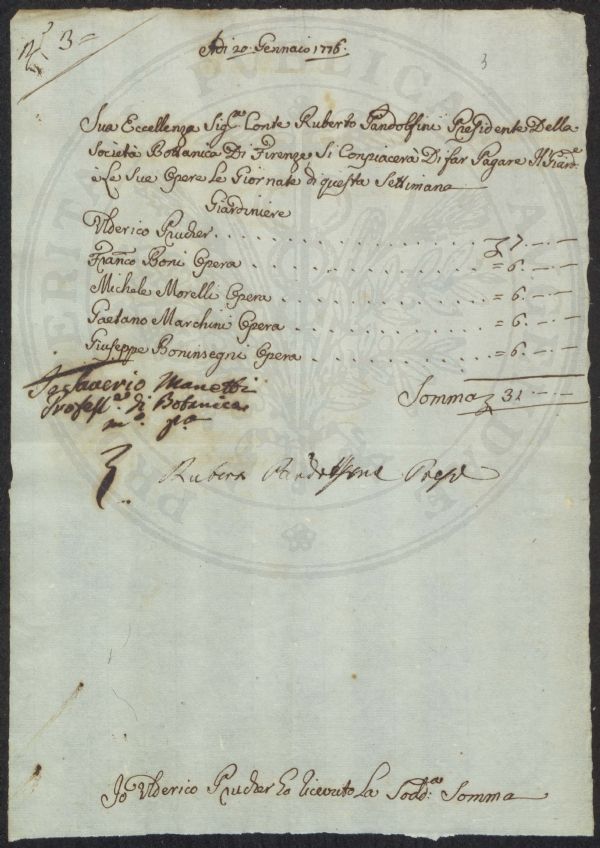 N.º 3 =
Adi 20. Gennaio 1776.
3
Sua Eccellenza Sig.re Conte Ruberto Pandolfini Presidente Della
Società Bottanica Di Firenze, Si Conpiacerà Di far Pagare Il Giard.e
è Le Sue Opere Le Giornate di questa Settimana
Giardiniere
Ulderico Prucher . . . . . . . . . . . . . . £ 7. – . –
Franco Boni Opera . . . . . . . . . . . . = 6. – . –
Michele Morelli Opera . . . . . . . . . . = 6. – . –
Gaetano Marchini Opera . . . . . . . . = 6. – . –
Giuseppe Boninsegni Opera . . . . . . . = 6. – . –
Somma £ 31 – . –
Saverio Manetti
Profess.e di Botanica
m.o p.a
Ruberto Pandolfini Presd
Io Ulderico Prucher ho riceuto La Sodd.a Somma